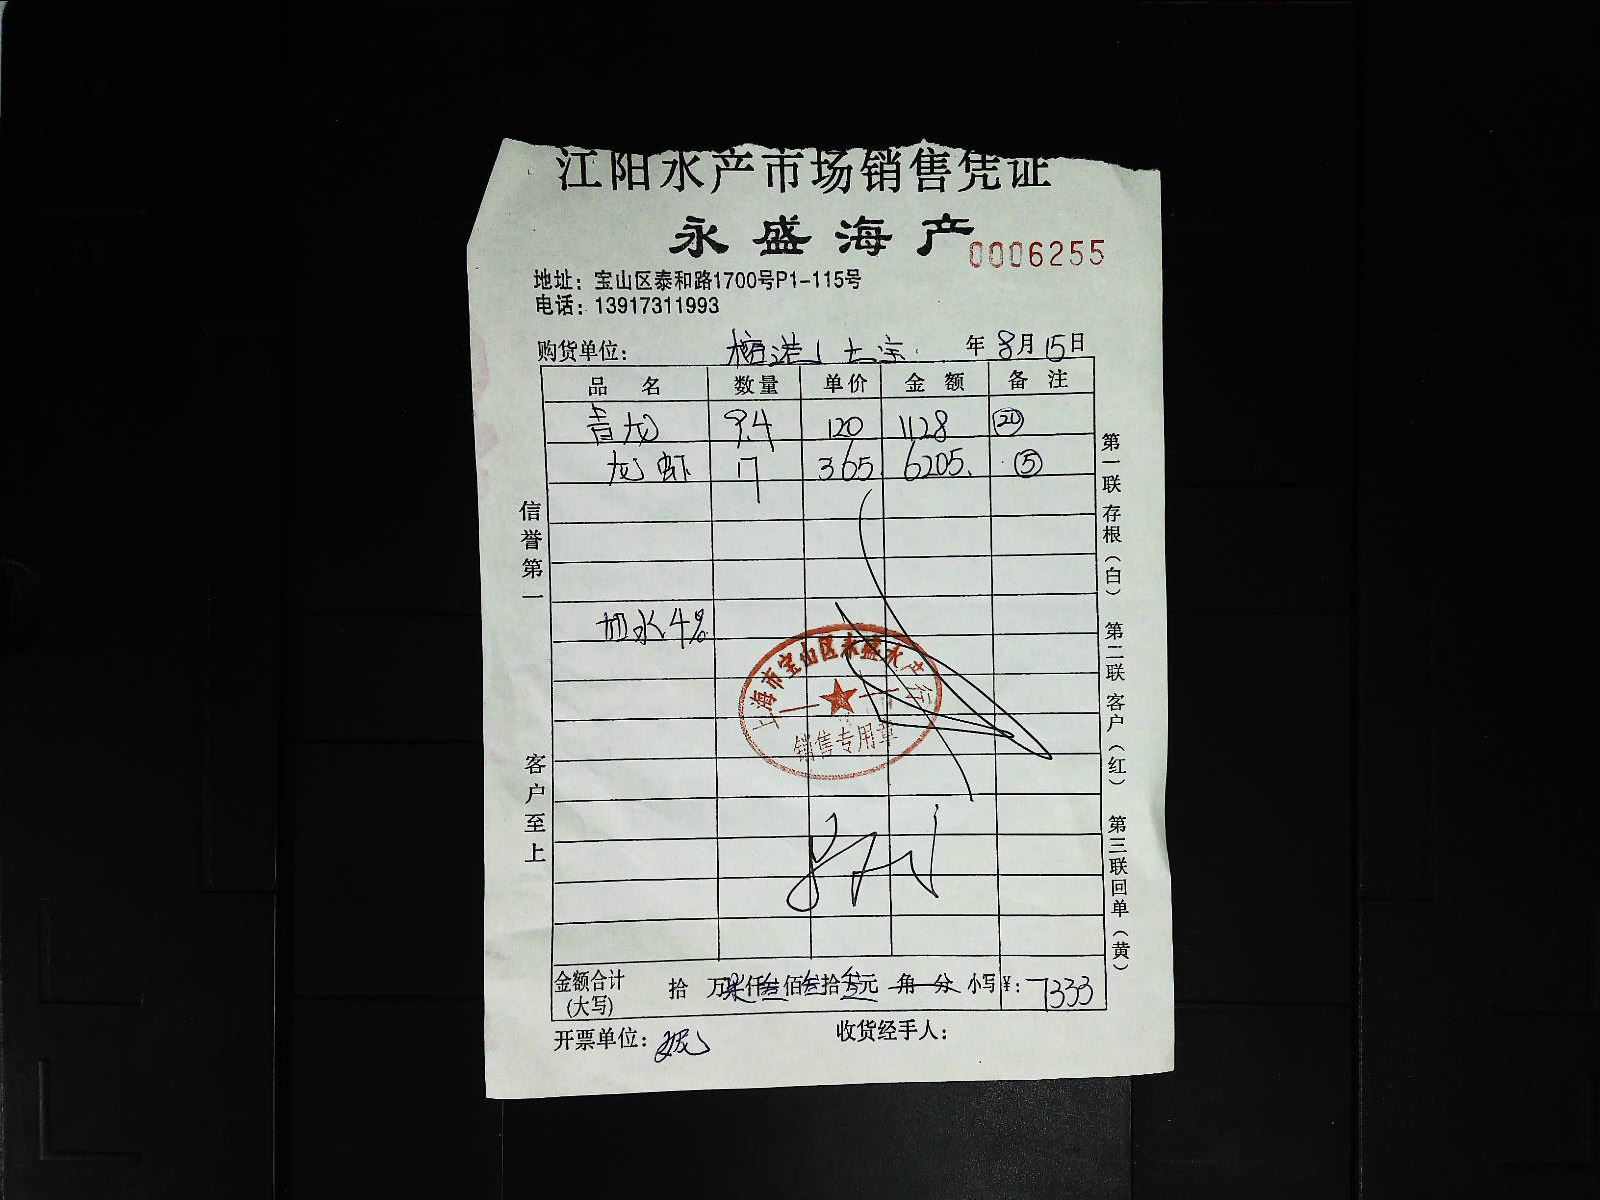 江阳水产市场销售凭证
永盛海产
0006255
地址：宝山区泰和路1700号P1-115号
电话：13917311993
购货单位： 年 8月15日
品名 数量 单价 金额 备注
青龙 9.4 120 1128 ⑳
龙虾 17 365 6205. ⑤
加水4%
信誉第一
客户至上
第一联存根（白） 第二联客户（红） 第三联回单（黄）
上海市宝山区永盛水产行
销售专用章
金额合计 拾 万柒仟叁佰叁拾叁元 角 分 小写¥：7333
(大写)
开票单位： 收货经手人：